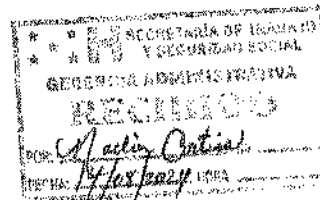 SECRETARÍA DE TRABAJO
Y SEGURIDAD SOCIAL
GERENCIA ADMINISTRATIVA
RECIBIDO
POR:
FECHA: 14/08/2024 HORA